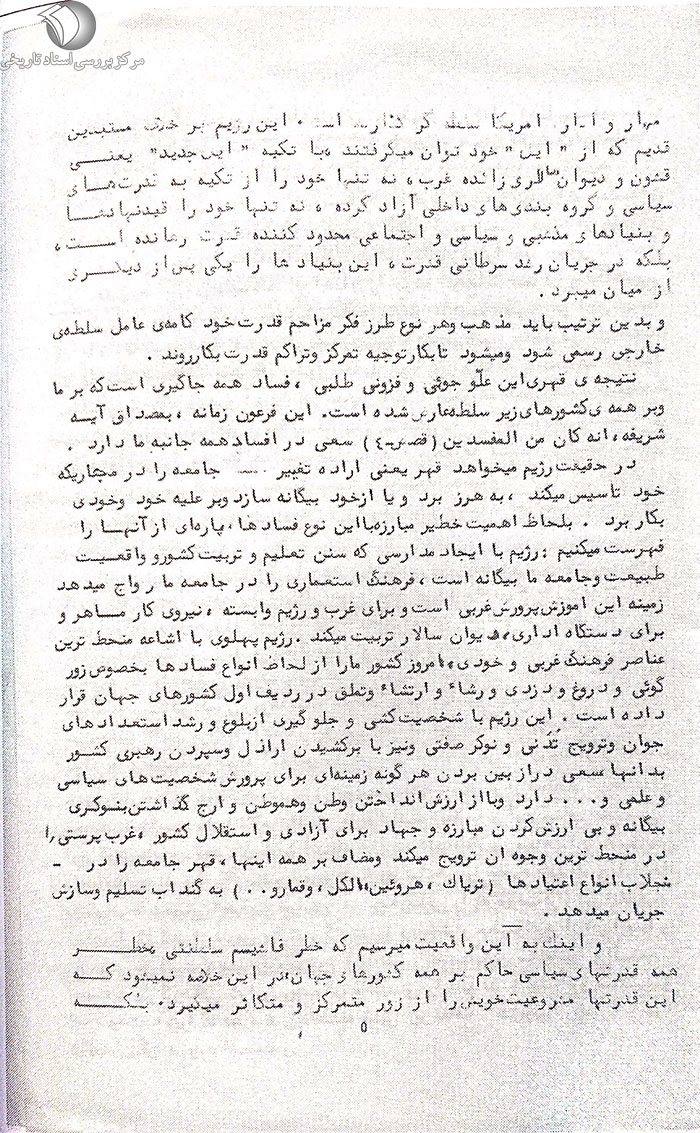 مرکز بررسی اسناد تاریخی
امریکا سلطه گر است . این رژیم بر خلاف مستبدین
قدیم که از "ایل" خود توان میگرفتند ، با تکیه "ایل جدید" یعنـی
قشون و دیوان سالاری زائده غرب ، نه تنها خود را از تکیه به قدرت‌های
سیاسی و گروه بندی های داخلی آزاد کرده ، نه تنها خود را
و بنیادهای مذهبی و سیاسی و اجتماعی محدود کننده قدرت رهانده اسـت ،
بلکه در جریان رشد سرطانی قدرت ، این بنیاد ها را یکی پس از دیگـری
از میان میبرد .
و بدین ترتیب باید مذهب وهر نوع طرز فکر مزاحم قدرت خود کامه‌ی عامل سلطه‌ی
خارجی رسمی شود ومیشود تابکار توجیه تمرکز وتراکم قدرت بکار روند .
نتیجه ی قهری این علّو جوئی و فزونی طلبی ، فساد همه جاگیری است که بر ما
وبر همه ی کشورهای زیر سلطه عارض شده است. این فرعون زمانه ، بمصداق آیـه
شریفه ، انه کان من المفسدین (قصص-٤) سعی در افساد همه جانبه ما دارد .
در حقیقت رژیم میخواهد قهر یعنی اراده تغییر جامعه را در مجاریکه
خود تاسیس میکند ، به هرز برد و یا از خود بیگانه سازد وبر علیه خود وخودی
بکار برد . بلحاظ اهمیت خطیر مبارزه با این نوع فسادها ، پاره‌ای از آنهـا را
فهرست میکنیم : رژیم با ایجاد مدارسی که سنن تعلیم و تربیت کشور و واقعیـت
طبیعت وجامعه ما بیگانه است ، فرهنگ استعماری را در جامعه ما رواج میدهد
زمینه این اموزش پرورش غربی است و برای غرب و رژیم وابسته ، نیروی کار مـاهر و
برای دستگاه اداری ، دیوان سالار تربیت میکند . رژیم پهلوی با اشاعه منحط ترین
عناصر فرهنگ غربی و خودی ، امروز کشور مارا از لحاظ انواع فساد ها بخصوص زور
گوئی و دروغ و دزدی و رشاء و ارتشاء وتملق در ردیف اول کشورهای جهان قرار
داده است . این رژیم با شخصیت کشی و جلو گیری از بلوغ و رشد استعدادهای
جوان وترویج تدّنی و نوکر صفتی ونیز با برکشیدن اراذل وسپردن رهبری کشـور
بدانها سعی در از بین بردن هر گونه زمینه‌ای برای پرورش شخصیت های سیاسی
و علمی و ... دارد وبا از ارزش انداختن وطن وهموطن و ارج گذاشتن بنوکری
بیگانه و بی ارزش کردن مبارزه و جهاد برای آزادی و استقلال کشور ، غرب پرستی را
در منحط ترین وجوه ان ترویج میکند ومضاف بر همه اینها ، قهر جامعه را در -
منجلاب انواع اعتیاد ها (تریاک ، هروئین ، الکل ، وقمار و . .) به گنداب تسلیم وسازش
جریان میدهد .
و اینک به این واقعیت میرسیم که خطر فاشیسم سلطنتی
همه قدرتهای سیاسی حاکم بر همه کشورهای جهان ، در این خلاصه نمیشود کـه
این قدرتها مشروعیت خویش را از زور متمرکز و متکاثر میگیرد . بلکـه
٥